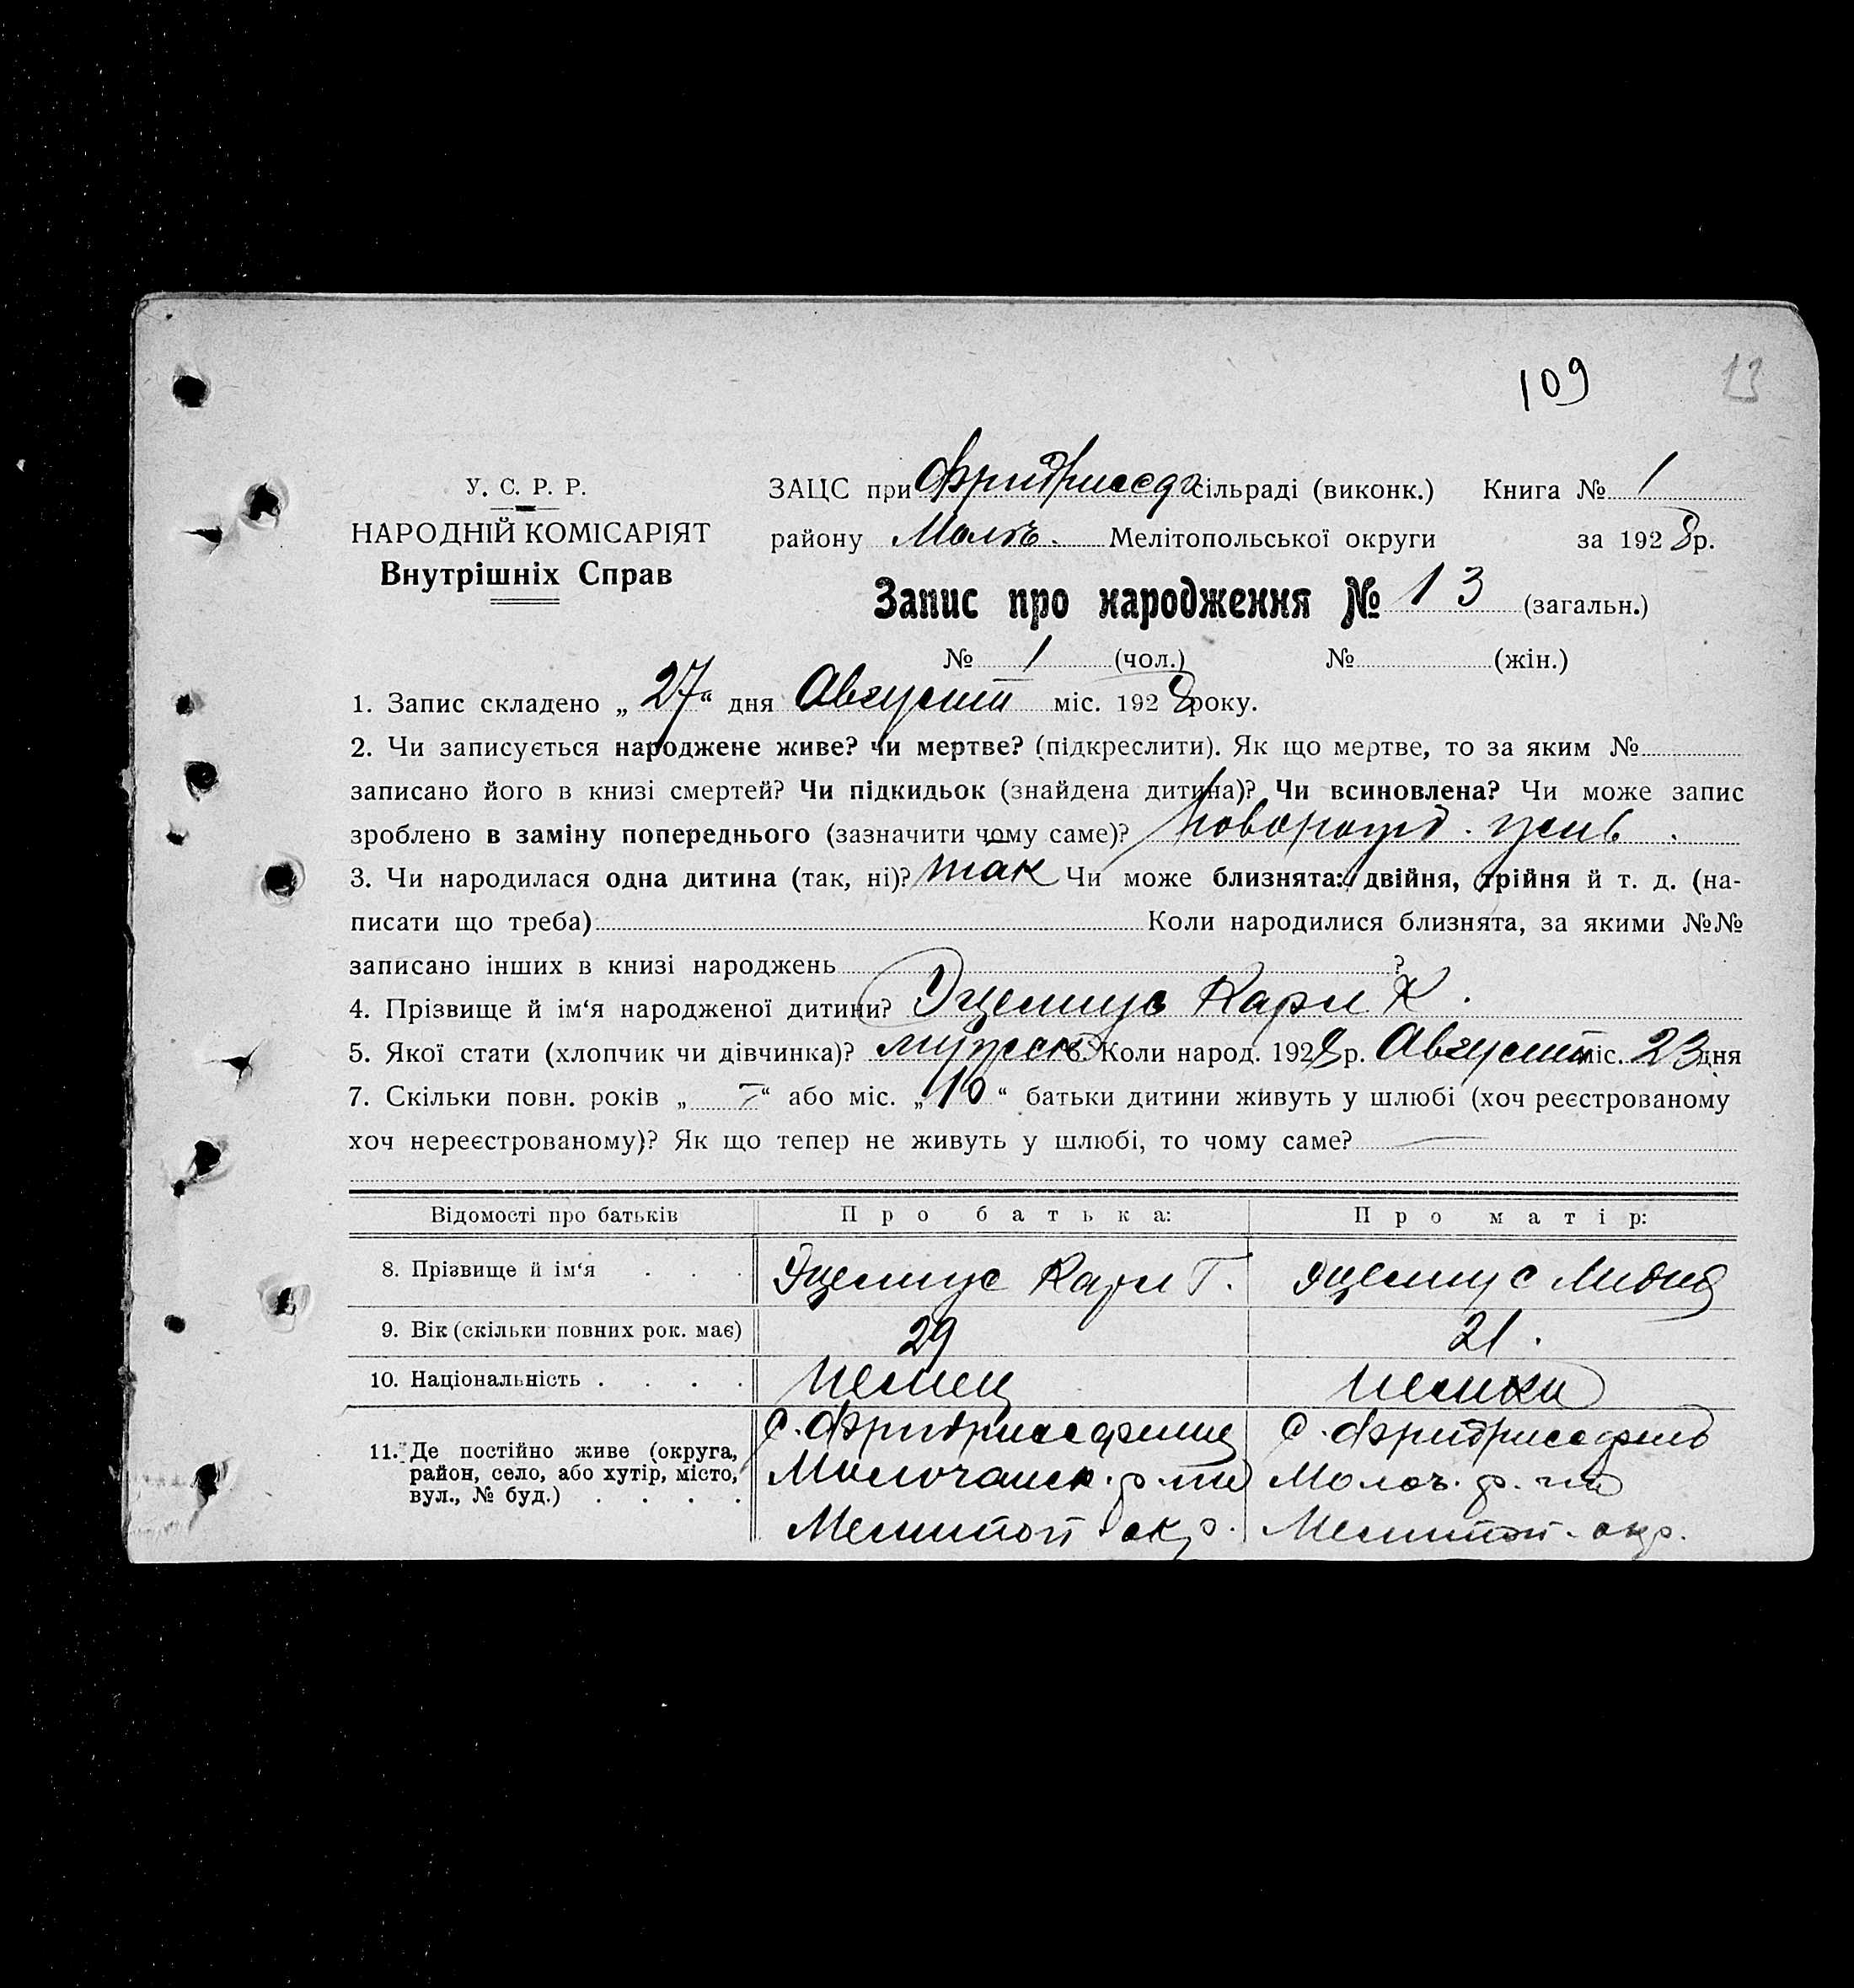 109 13
У. С. Р. Р.
НАРОДНІЙ КОМІСАРІЯТ
Внутрішніх Справ
ЗАЦС при сільраді (виконк.) Книга № 1
району Молоч. Мелітопольської округи за 1928 р.
Запис про народження № 13 (загальн.)
№ 1 (чол.) № (жін.)
1. Запис складено „27“ дня Август міс. 1928 року.
2. Чи записується народжене живе? чи мертве? (підкреслити). Як що мертве, то за яким №
записано його в книзі смертей? Чи підкидьок (знайдена дитина)? Чи всиновлена? Чи може запис
зроблено в заміну попереднього (зазначити чому саме)?
3. Чи народилася одна дитина (так, ні)? так Чи може близнята: двійня, трійня й т. д. (на-
писати що треба) Коли народилися близнята, за якими №№
записано інших в книзі народжень ?
4. Прізвище й ім‘я народженої дитини? Карл К.
5. Якої стати (хлопчик чи дівчинка)? мужск 6. Коли народ. 1928 р. Август міс. 23 дня
7. Скільки повн. років „ — “ або міс. „10“ батьки дитини живуть у шлюбі (хоч реєстрованому
хоч нереєстрованому)? Як що тепер не живуть у шлюбі, то чому саме? —
Відомості про батьків Про батька: Про матір:
8. Прізвище й ім‘я . . . Эцемус Карл Г. Эцемус Лидия
9. Вік (скільки повних рок. має) 29 21.
10. Національність . . . . Немец Немка
11. Де постійно живе (округа,
район, село, або хутір, місто,
вул., № буд.) . . . .
с. Фридрихсфельд
Молочанск. р-на
Мелитоп. окр.
с. Фридрихсфельд
Молоч. р-на
Мелитоп. окр.